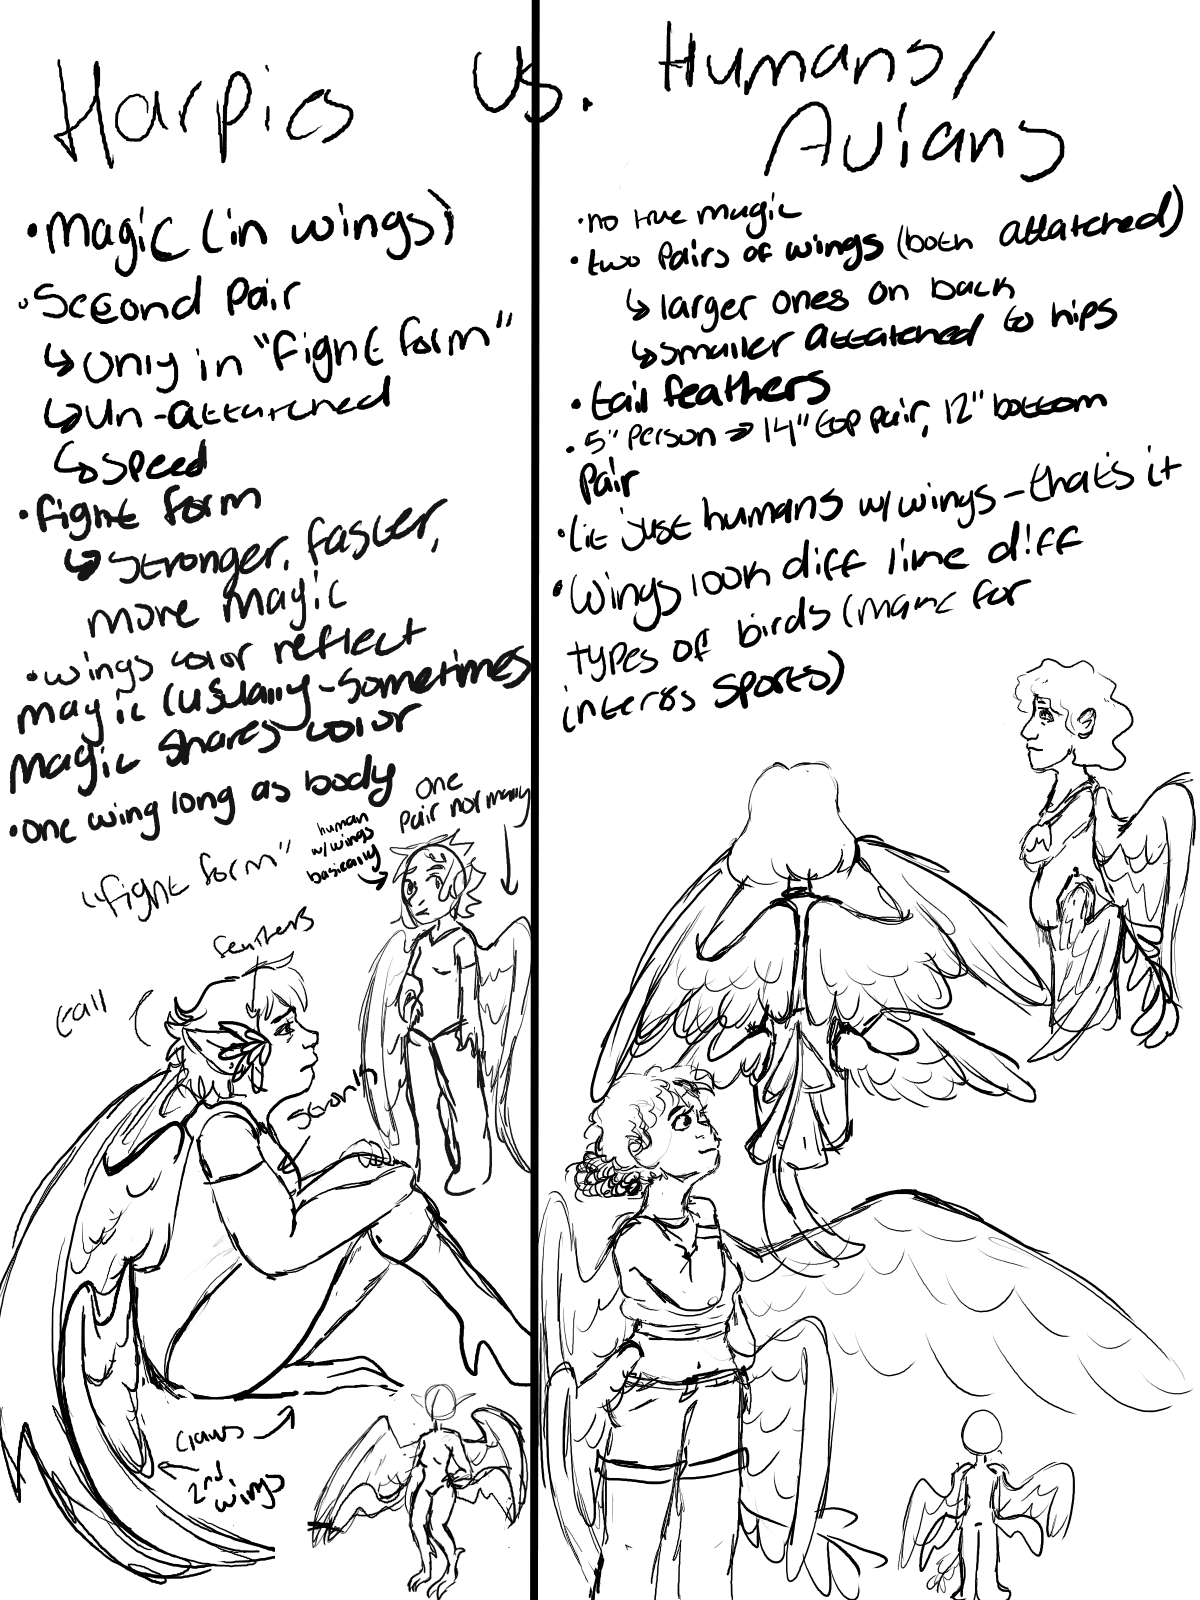 Harpies vs. Humans/
Avians
•Magic (in wings)
•Second Pair
↳Only in "Fight form"
↳Un-attatched
↳speed
•fight form
↳Stronger, faster,
more magic
•wings color reflect
magic (usually-sometimes
magic shares color
•one wing long as body
"fight form"
human
w/wings
basically
one
pair normally
feathers
tall
strong
claws
2nd
wings
•no true magic
•two Pairs of wings (both attatched)
↳larger ones on back
↳smaller attatched to hips
•tail feathers
•5" Person → 14" top pair, 12" bottom
Pair
•Lit just humans w/wings-that's it
•Wings look diff like diff
types of birds (make for
inters sports)